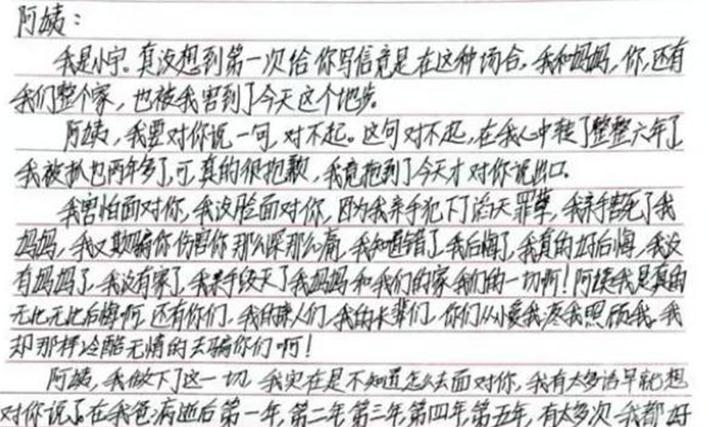 阿姨：
我是小宇。真没想到第一次给你写信竟是在这种场合，我和妈妈，你，还有
我们整个家，也被我害到了今天这个地步。
阿姨，我要对你说一句，对不起。这句对不起，在我心中转了整整六年了
我被抓也两年多了，可真的很抱歉，我竟拖到了今天才对你说出口。
我害怕面对你，我没脸面对你，因为我亲手犯下了滔天罪孽，我亲手害死了我
妈妈，我又欺骗你伤害你那么深那么痛，我知道错了，我后悔了，我真的好后悔，我没
有妈妈了，我没有家了，我亲手毁灭了我妈妈和我们的家我们的一切啊！阿姨我是真的
无比无比后悔啊，还有你们，我的亲人们，我的长辈们，你们从小爱我疼我照顾我，我
却那样冷酷无情的去骗你们啊！
阿姨，我做下了这一切，我实在是不知道怎么去面对你，我有太多话早就想
对你说了。在我爸病逝后第一年，第二年，第三年，第四年，第五年，有太多次我都好